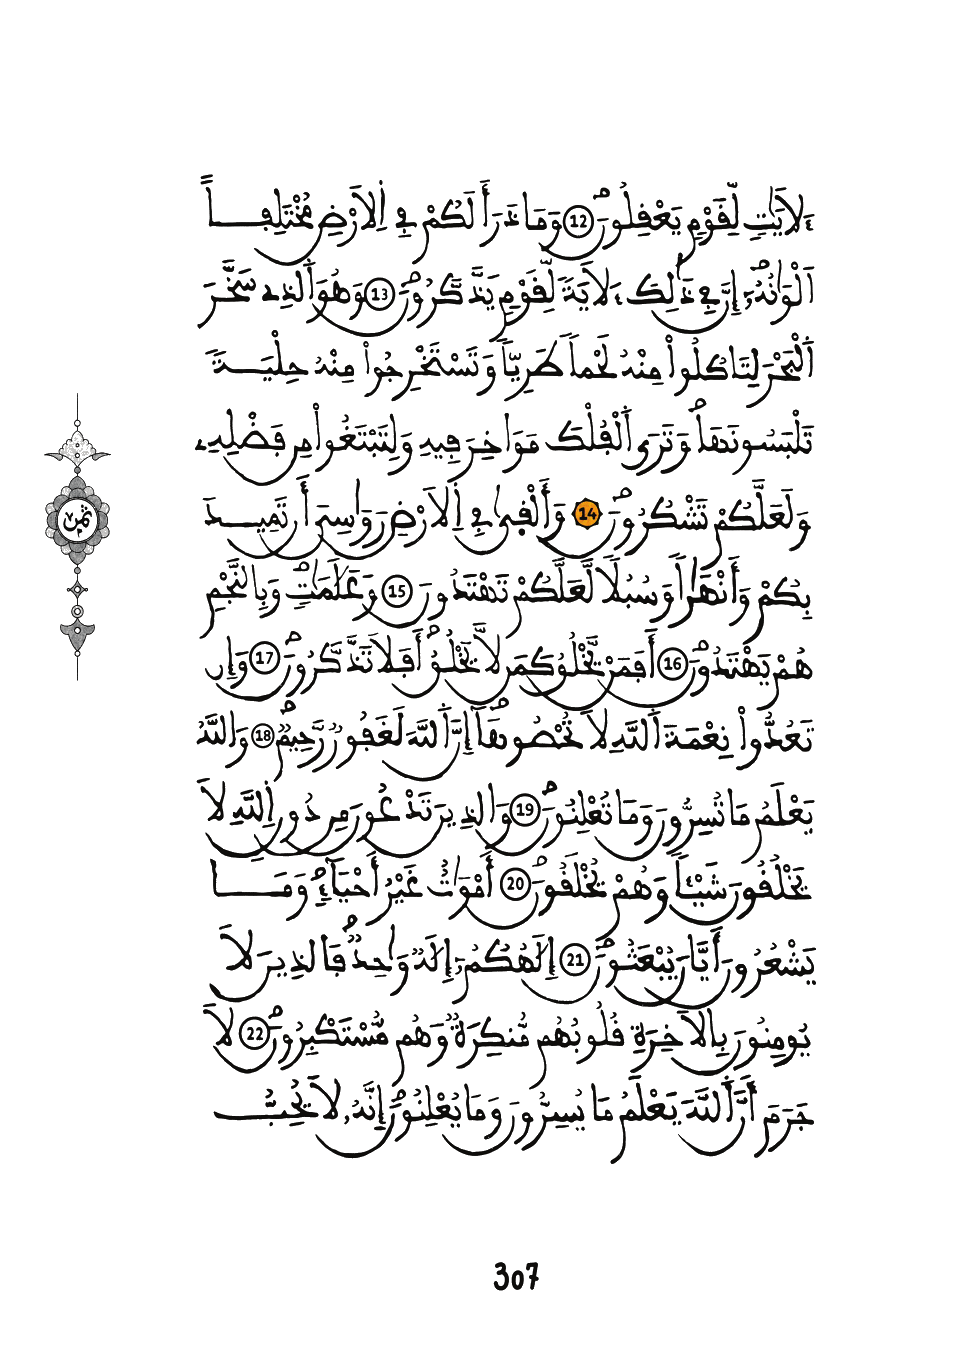 ءَلَايَٰتٖ لِّقَوْمٖ يَعْقِلُونَۖ 12 وَمَا ذَرَأَ لَكُمْ فِي اِ۬لَارْضِ مُخْتَلِفاً
اَلْوَٰنُهُۥٓۖ إِنَّ فِي ذَٰلِكَ ءَلَايَةٗ لِّقَوْمٖ يَذَّكَّرُونَۖ 13 وَهُوَ اَ۬لذِے سَخَّرَ
اَ۬لْبَحْرَ لِتَاكُلُواْ مِنْهُ لَحْماٗ طَرِيّاٗ وَتَسْتَخْرِجُواْ مِنْهُ حِلْيَةٗ
تَلْبَسُونَهَاۖ وَتَرَى اَ۬لْفُلْكَ مَوَاخِرَ فِيهِ وَلِتَبْتَغُواْ مِن فَضْلِهِۦ
وَلَعَلَّكُمْ تَشْكُرُونَۖ 14 وَأَلْق۪ىٰ فِي اِ۬لَارْضِ رَوَٰسِيَ أَن تَمِيدَ
بِكُمْ وَأَنْهَٰراٗ وَسُبُلاٗ لَّعَلَّكُمْ تَهْتَدُونَ 15 وَعَلَٰمَٰتٖۖ وَبِالنَّجْمِ
هُمْ يَهْتَدُونَۖ 16 أَفَمَنْ يَّخْلُقُ كَمَن لَّا يَخْلُقُۖ أَفَلَا تَذَّكَّرُونَۖ 17 وَإِن
تَعُدُّواْ نِعْمَةَ اَ۬للَّهِ لَا تُحْصُوهَآۖ إِنَّ اَ۬للَّهَ لَغَفُورٞ رَّحِيمٞۖ 18 وَاللَّهُ
يَعْلَمُ مَا تُسِرُّونَ وَمَا تُعْلِنُونَۖ 19 وَالذِينَ تَدْعُونَ مِن دُونِ اِ۬للَّهِ لَا
يَخْلُقُونَ شَيْـٔاٗ وَهُمْ يُخْلَقُونَۖ 20 أَمْوَٰتٌ غَيْرُ أَحْيَآءٖۖ وَمَا
يَشْعُرُونَ أَيَّانَ يُبْعَثُونَۖ 21 إِلَٰهُكُمُۥٓ إِلَٰهٞ وَٰحِدٞۖ فَالذِينَ لَا
يُومِنُونَ بِالَاخِرَةِ قُلُوبُهُم مُّنكِرَةٞ وَهُم مُّسْتَكْبِرُونَۖ 22 لَا
جَرَمَ أَنَّ اَ۬للَّهَ يَعْلَمُ مَا يُسِرُّونَ وَمَا يُعْلِنُونَۖ إِنَّهُۥ لَا يُحِبُّ
ثمن
307